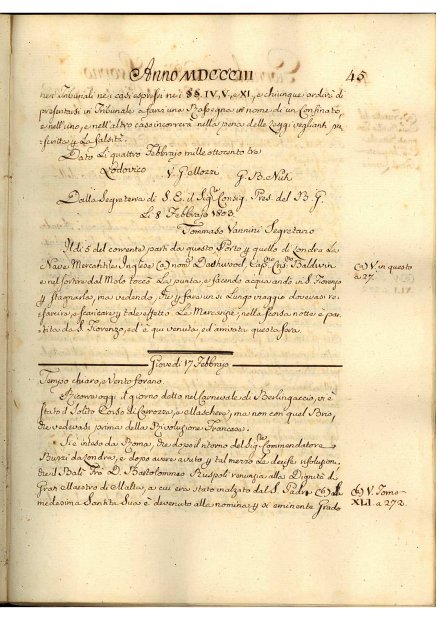 Anno MDCCCIII 45
nei Tribunali nei casi espressi nei §§ IV, V, e XI, e chiunque ardirà di
presentarsi in Tribunale a fare una Rassegna in nome di un Confinato,
e nell'uno, e nell'altro caso incorrerà nella pena delle Leggi veglianti
la falsità.
Dato Li quattro Febbrajo mille ottocento tre
Lodovico
V. Gallozzi G. B. Nuti
Dalla Segreteria di S. E. il Sig.re Consig. Pres. del B. G.
Li 8 Febbrajo 1803.
Tommaso Vannini Segretario
Il dì 5 del corrente partì da questo Porto quello di Londra La
Nave Mercantile Inglese (a) nom. Dashwood, Cap. Baldwin
e nel sortire dal Molo toccò La punta, e facendo acqua andò in S. Fiorenzo
stagnarla, ma vedendo, che fare un sì Lungo viaggio doveva
e scaricare tale effetto Le Mercanzie, nella scorsa notte è par-
tita da S. Fiorenzo, ed è qui venuta, ed arrivata questa sera.
(a) V. in questo
a 27.
Giovedì 17 Febbrajo
Tempo chiaro, e Vento forano.
Ricorre oggi il giorno detto nel Carnevale di Berlingaccio, vi è
stato il Solito Corso di Carrozze, e Maschere, ma non con quel Brio,
che vedevasi prima della Rivoluzione Francese.
Si è inteso da Roma, che dopo il ritorno del Sig.re Commendatore
Buzzi da Londra, e dopo avere avuto tal mezzo La decisa risoluzione,
che il Balì Fra D. Bartolommeo Ruspoli renunzia alla Dignità di
Gran Maestro di Malta, a cui era stato inalzato dal S. Padre (b) la
medesima Santità Sua è devenuto alla nomina sì eminente Grado
(b) V. Tomo
XLI. a 272.